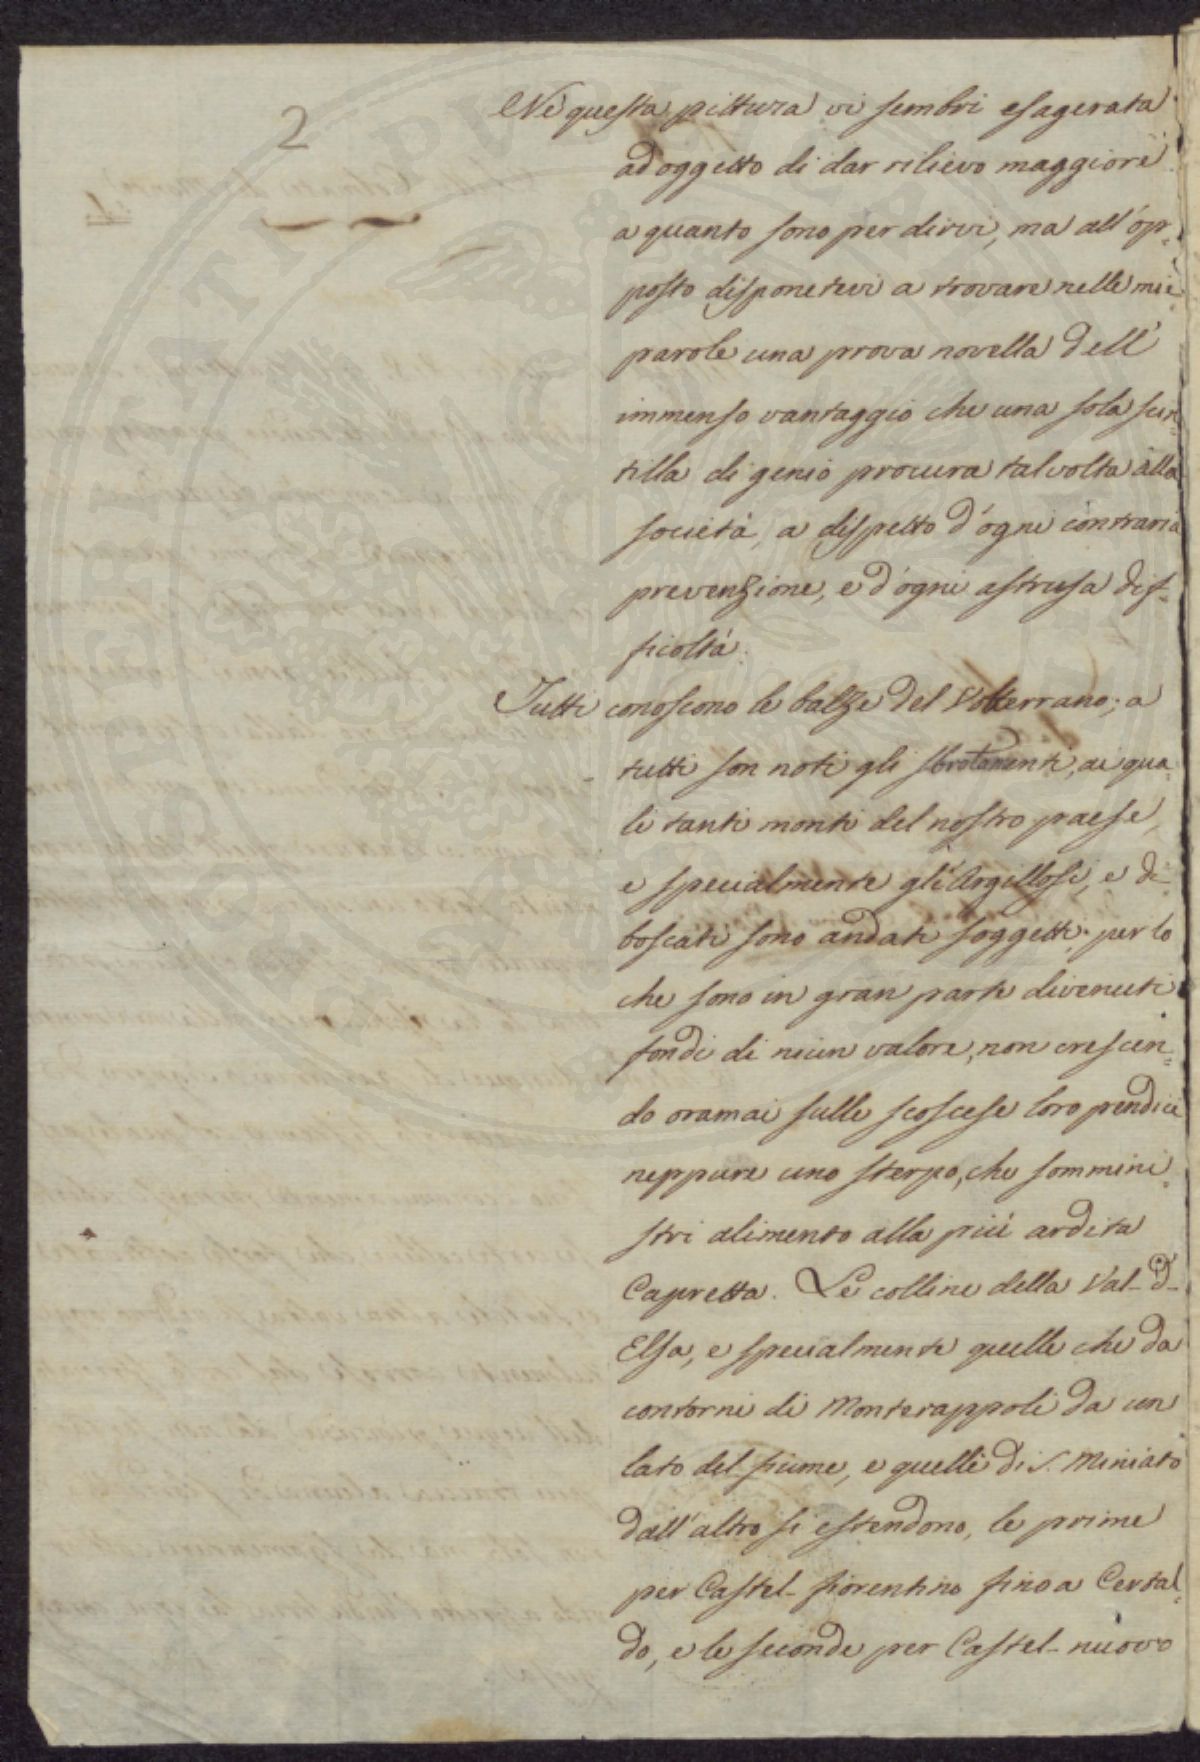 2
Nè questa pittura vi sembri esagerata
ad oggetto di dar rilievo maggiore
a quanto sono per dirvi, ma all'op-
posto disponetevi a trovare nelle mie
parole una prova novella dell'
immenso vantaggio che una sola scin-
tilla di genio procura talvolta alla
società, a dispetto d'ogni contraria
prevenzione, e d'ogni astrusa dif-
ficoltà.
Tutti conoscono le balze del Volterrano; a
tutti son noti gli sbrotamenti, ai qua-
li tanti monti del nostro paese,
e specialmente gli Argillosi, e di-
boscati sono andati soggetti; per lo
che sono in gran parte divenuti
fondi di niun valore, non crescen-
do oramai sulle scoscese loro pendici
neppure uno sterpo, che sommini-
stri alimento alla più ardita
Capretta. Le colline della Val-d-
Elsa, e specialmente quelle che da
contorni di Monterappoli da un
lato del fiume, e quelle di S. Miniato
dall'altro si estendono, le prime
per Castel-fiorentino fino a Certal-
do, e le seconde per Castel-nuovo